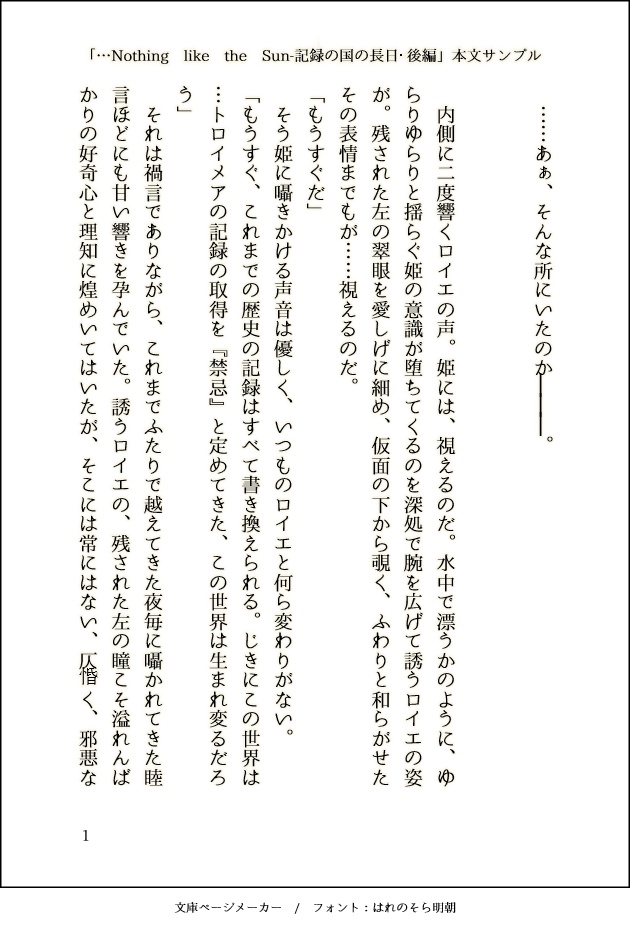 「…Nothing like the Sun-記録の国の長日・後編」本文サンプル
……あぁ、そんな所にいたのか――――。
内側に二度響くロイエの声。姫には、視えるのだ。水中で漂うかのように、ゆ
らりゆらりと揺らぐ姫の意識が堕ちてくるのを深処で腕を広げて誘うロイエの姿
が。残された左の翠眼を愛しげに細め、仮面の下から覗く、ふわりと和らがせた
その表情までもが……視えるのだ。
「もうすぐだ」
そう姫に囁きかける声音は優しく、いつものロイエと何ら変わりがない。
「もうすぐ、これまでの歴史の記録はすべて書き換えられる。じきにこの世界は
…トロイメアの記録の取得を『禁忌』と定めてきた、この世界は生まれ変るだろ
う」
それは禍言でありながら、これまでふたりで越えてきた夜毎に囁かれてきた睦
言ほどにも甘い響きを孕んでいた。誘うロイエの、残された左の瞳こそ溢れんば
かりの好奇心と理知に煌めいてはいたが、そこには常にはない、仄惛く、邪悪な
1
文庫ページメーカー / フォント：はれのそら明朝